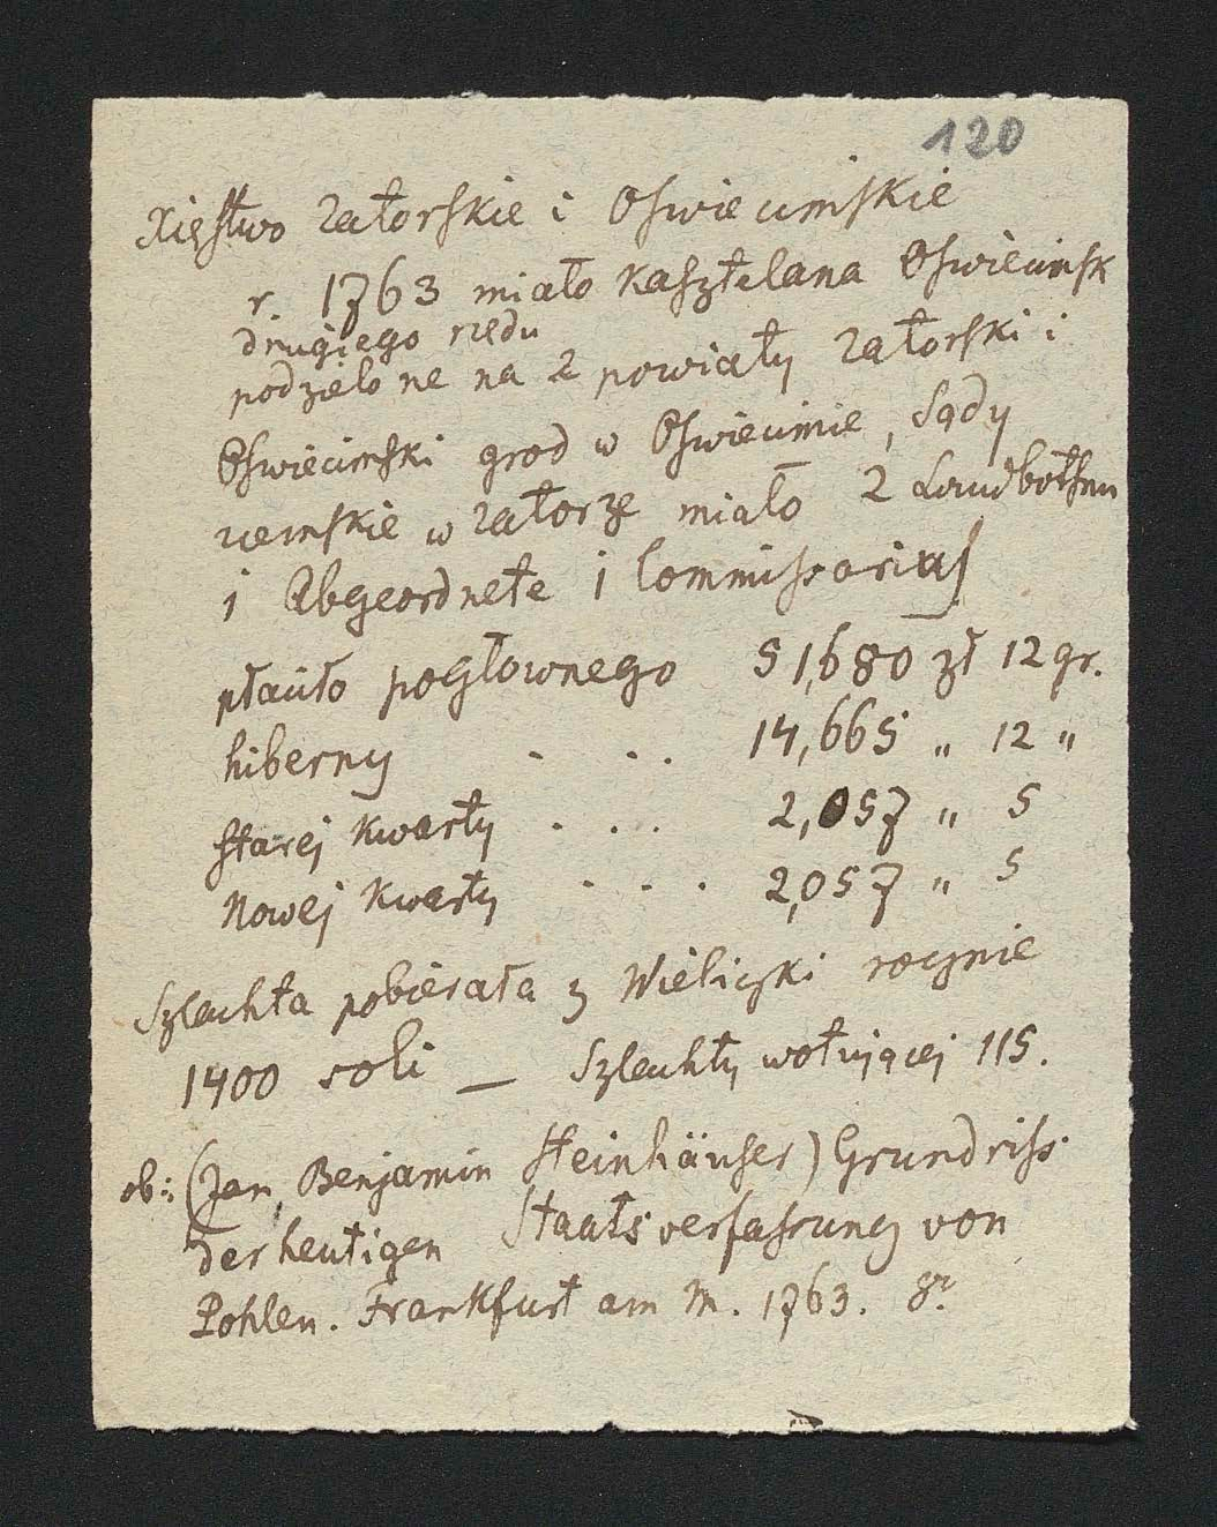 120
Xięstwo Zatorskie i Oswiecimskie
r. 1763 miało Kasztelana Oswiecimsk
drugiego rzedu
podzielone na 2 powiaty Zatorski i
Oswiecimski grod w Oswiecimie, Sądy
ziemskie w Zatorze miało 2 Landbothen
i Abgeordnete i Commissarius
płaciło pogłownego 51,680 zł 12 gr.
hiberny . . . 14,665 „ 12 „
starej Kwarty . . . 2,057 „ 5
Nowej Kwarty . . . 2,057 „ 5
Szlachta pobierała z Wieliczki rocznie
1400 soli — Szlachty wotującej 115.
ob: (Jan Benjamin Steinhäuser) Grundriss
der heutigen Staatsverfassung von
Pohlen. Frankfurt am M. 1763. 8º